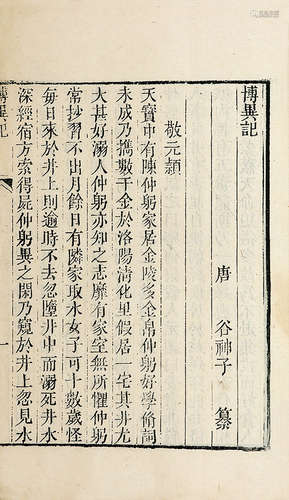 博異記
唐 谷神子 纂
敬元穎
天寶中有陳仲躬家居金陵多金帛仲躬好學脩詞
未成乃攜數千金於洛陽清化里假居一宅其井尤
大甚好溺人仲躬亦知之志靡有家室無所懼仲躬
常抄習不出月餘日有隣家取水女子可十數歲怪
每日來於井上則逾時不去忽墮井中而溺死井水
深經宿方索得屍仲躬異之閑乃窺於井上忽見水
博異記
一